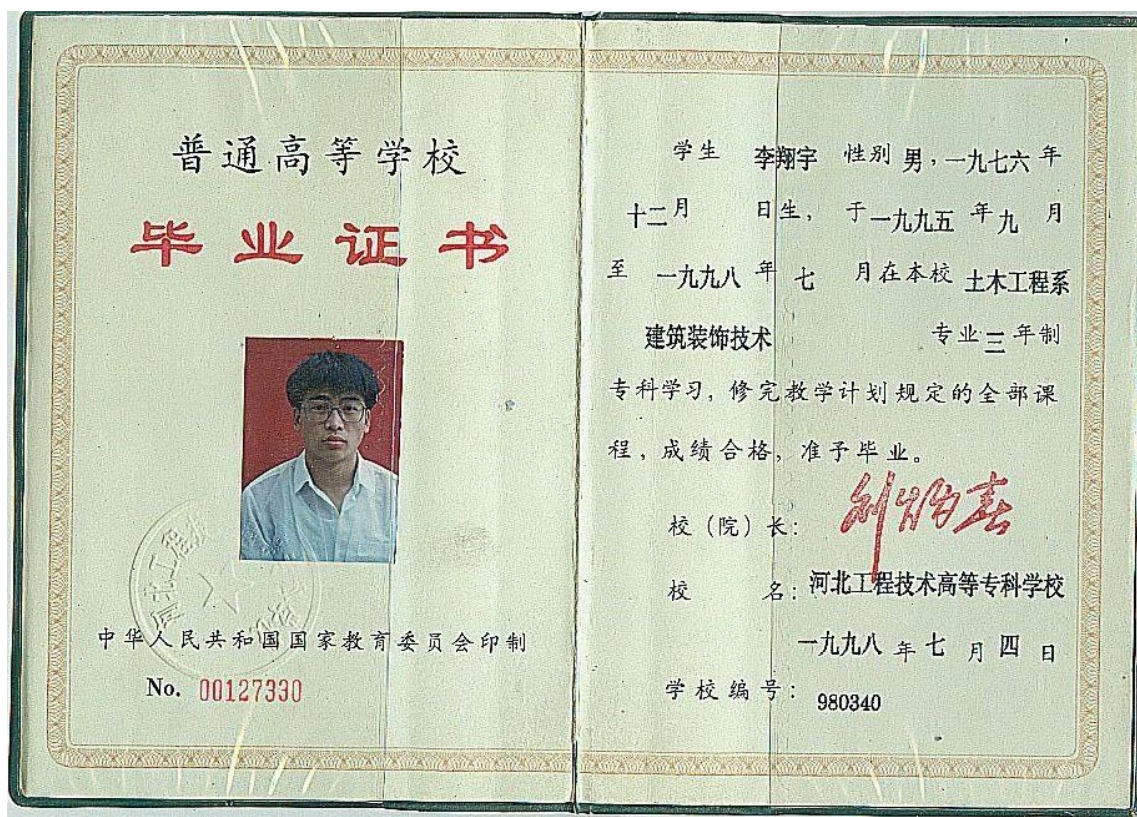 普通高等学校
毕业证书
中华人民共和国国家教育委员会印制
No. 00127330
学生 李翔宇 性别 男，一九七六年
十二月 日生， 于一九九五年九月
至 一九九八年七 月在本校 土木工程系
建筑装饰技术 专业三年制
专科学习，修完教学计划规定的全部课
程，成绩合格，准予毕业。
校（院）长：
校 名：河北工程技术高等专科学校
一九九八年七月四日
学校编号：980340